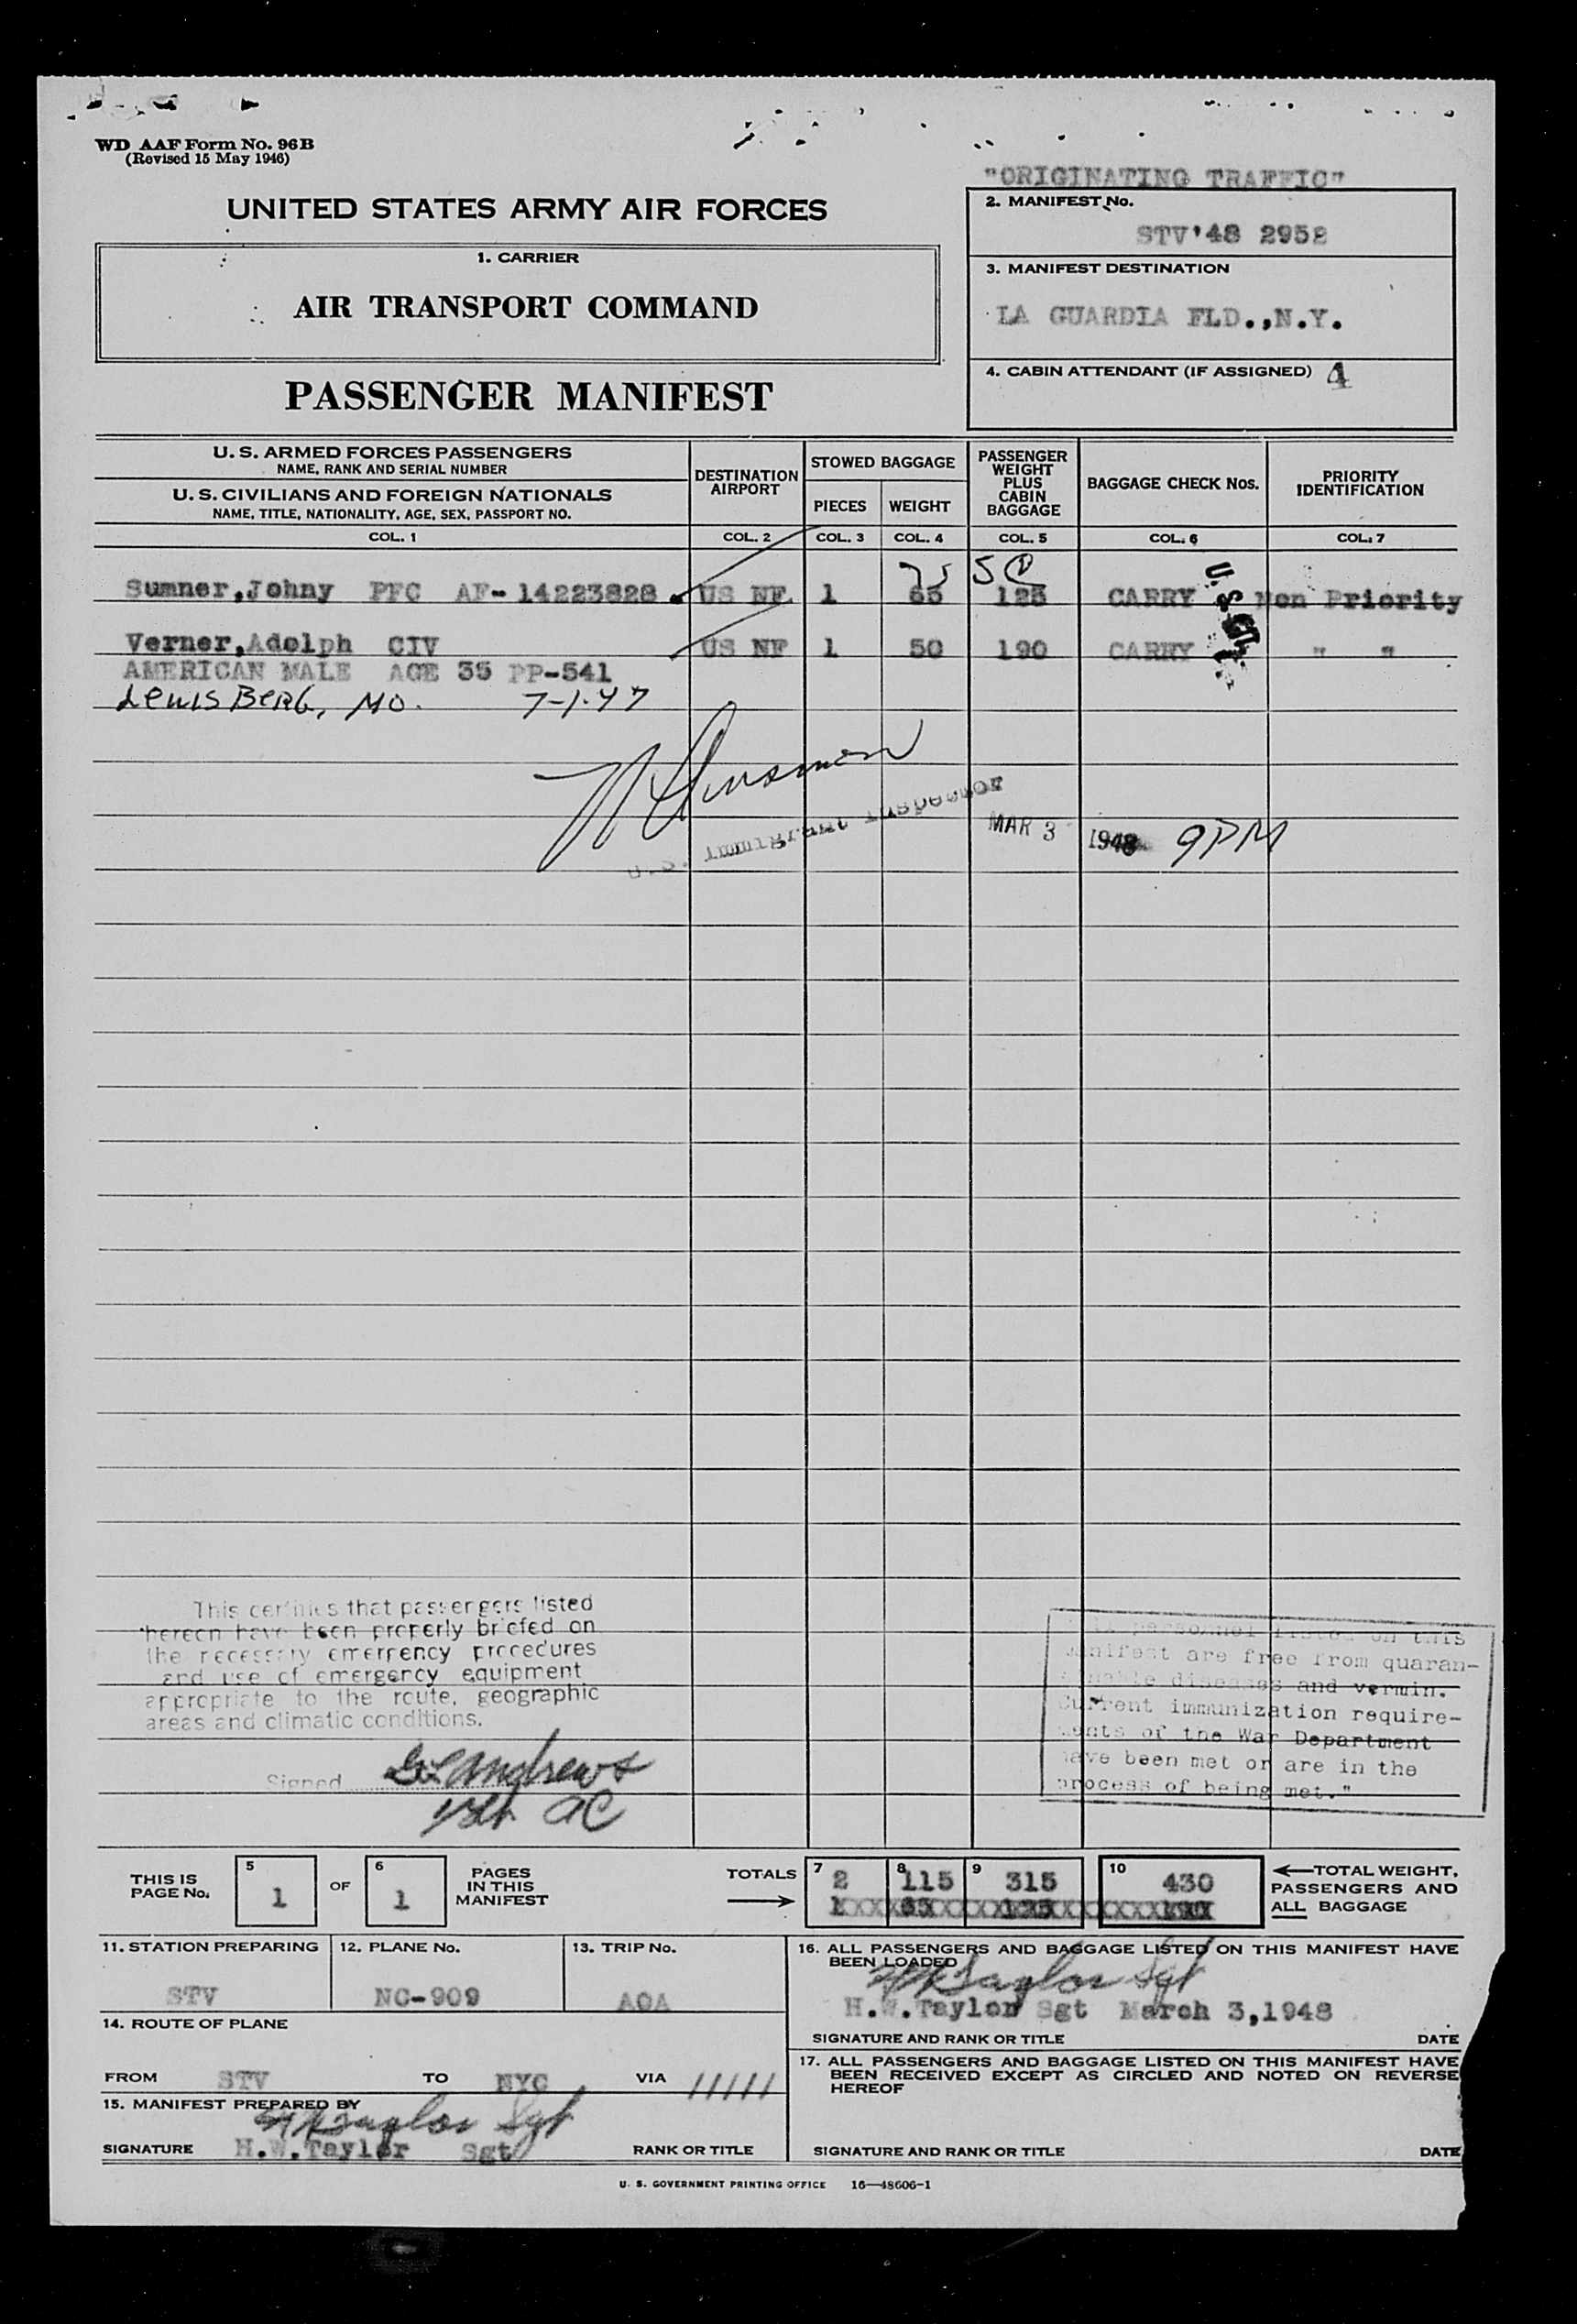 WD AAF Form No. 96B
(Revised 15 May 1946)
"ORIGINATING TRAFFIC"
UNITED STATES ARMY AIR FORCES
1. CARRIER
AIR TRANSPORT COMMAND
PASSENGER MANIFEST
2. MANIFEST No.
STV'48 2952
3. MANIFEST DESTINATION
LA GUARDIA FLD.,N.Y.
4. CABIN ATTENDANT (IF ASSIGNED) 4
U. S. ARMED FORCES PASSENGERS
NAME, RANK AND SERIAL NUMBER
U. S. CIVILIANS AND FOREIGN NATIONALS
NAME, TITLE, NATIONALITY, AGE, SEX, PASSPORT NO.
DESTINATION
AIRPORT
STOWED BAGGAGE
PIECES WEIGHT
PASSENGER
WEIGHT
PLUS
CABIN
BAGGAGE
BAGGAGE CHECK Nos.
PRIORITY
IDENTIFICATION
COL. 1 COL. 2 COL. 3 COL. 4 COL. 5 COL. 6 COL. 7
75
Sumner,Johny PFC AF-14223828 US NF 1 65 125 CARRY Non Priority
Verner,Adolph CIV US NF 1 50 190 CARRY " "
AMERICAN MALE AGE 35 PP-541
Lewis Berg, Mo. 7-1-47
U.S. Immigrant Inspector
MAR 3 1948 9PM
This certifies that passengers listed
hereon have been properly briefed on
the necessary emergency procedures
and use of emergency equipment
appropriate to the route, geographic
areas and climatic conditions.
Signed Andrews
AC
personnel listed on this
manifest are free from quaran-
tinable diseases and vermin.
Current immunization require-
ments of the War Department
have been met or are in the
process of being met."
THIS IS
PAGE No.
5
1
OF
6
1
PAGES
IN THIS
MANIFEST
TOTALS
7 2
8 115
9 315
10 430
TOTAL WEIGHT,
PASSENGERS AND
ALL BAGGAGE
11. STATION PREPARING
STV
12. PLANE No.
NC-909
13. TRIP No.
AOA
14. ROUTE OF PLANE
FROM STV TO NYC VIA /////
15. MANIFEST PREPARED BY
HWTaylor Sgt
SIGNATURE H.W.Taylor Sgt RANK OR TITLE
16. ALL PASSENGERS AND BAGGAGE LISTED ON THIS MANIFEST HAVE
BEEN LOADED
HWTaylor Sgt
H.W.Taylor Sgt March 3,1948
SIGNATURE AND RANK OR TITLE DATE
17. ALL PASSENGERS AND BAGGAGE LISTED ON THIS MANIFEST HAVE
BEEN RECEIVED EXCEPT AS CIRCLED AND NOTED ON REVERSE
HEREOF
SIGNATURE AND RANK OR TITLE DATE
U. S. GOVERNMENT PRINTING OFFICE 16—48606-1